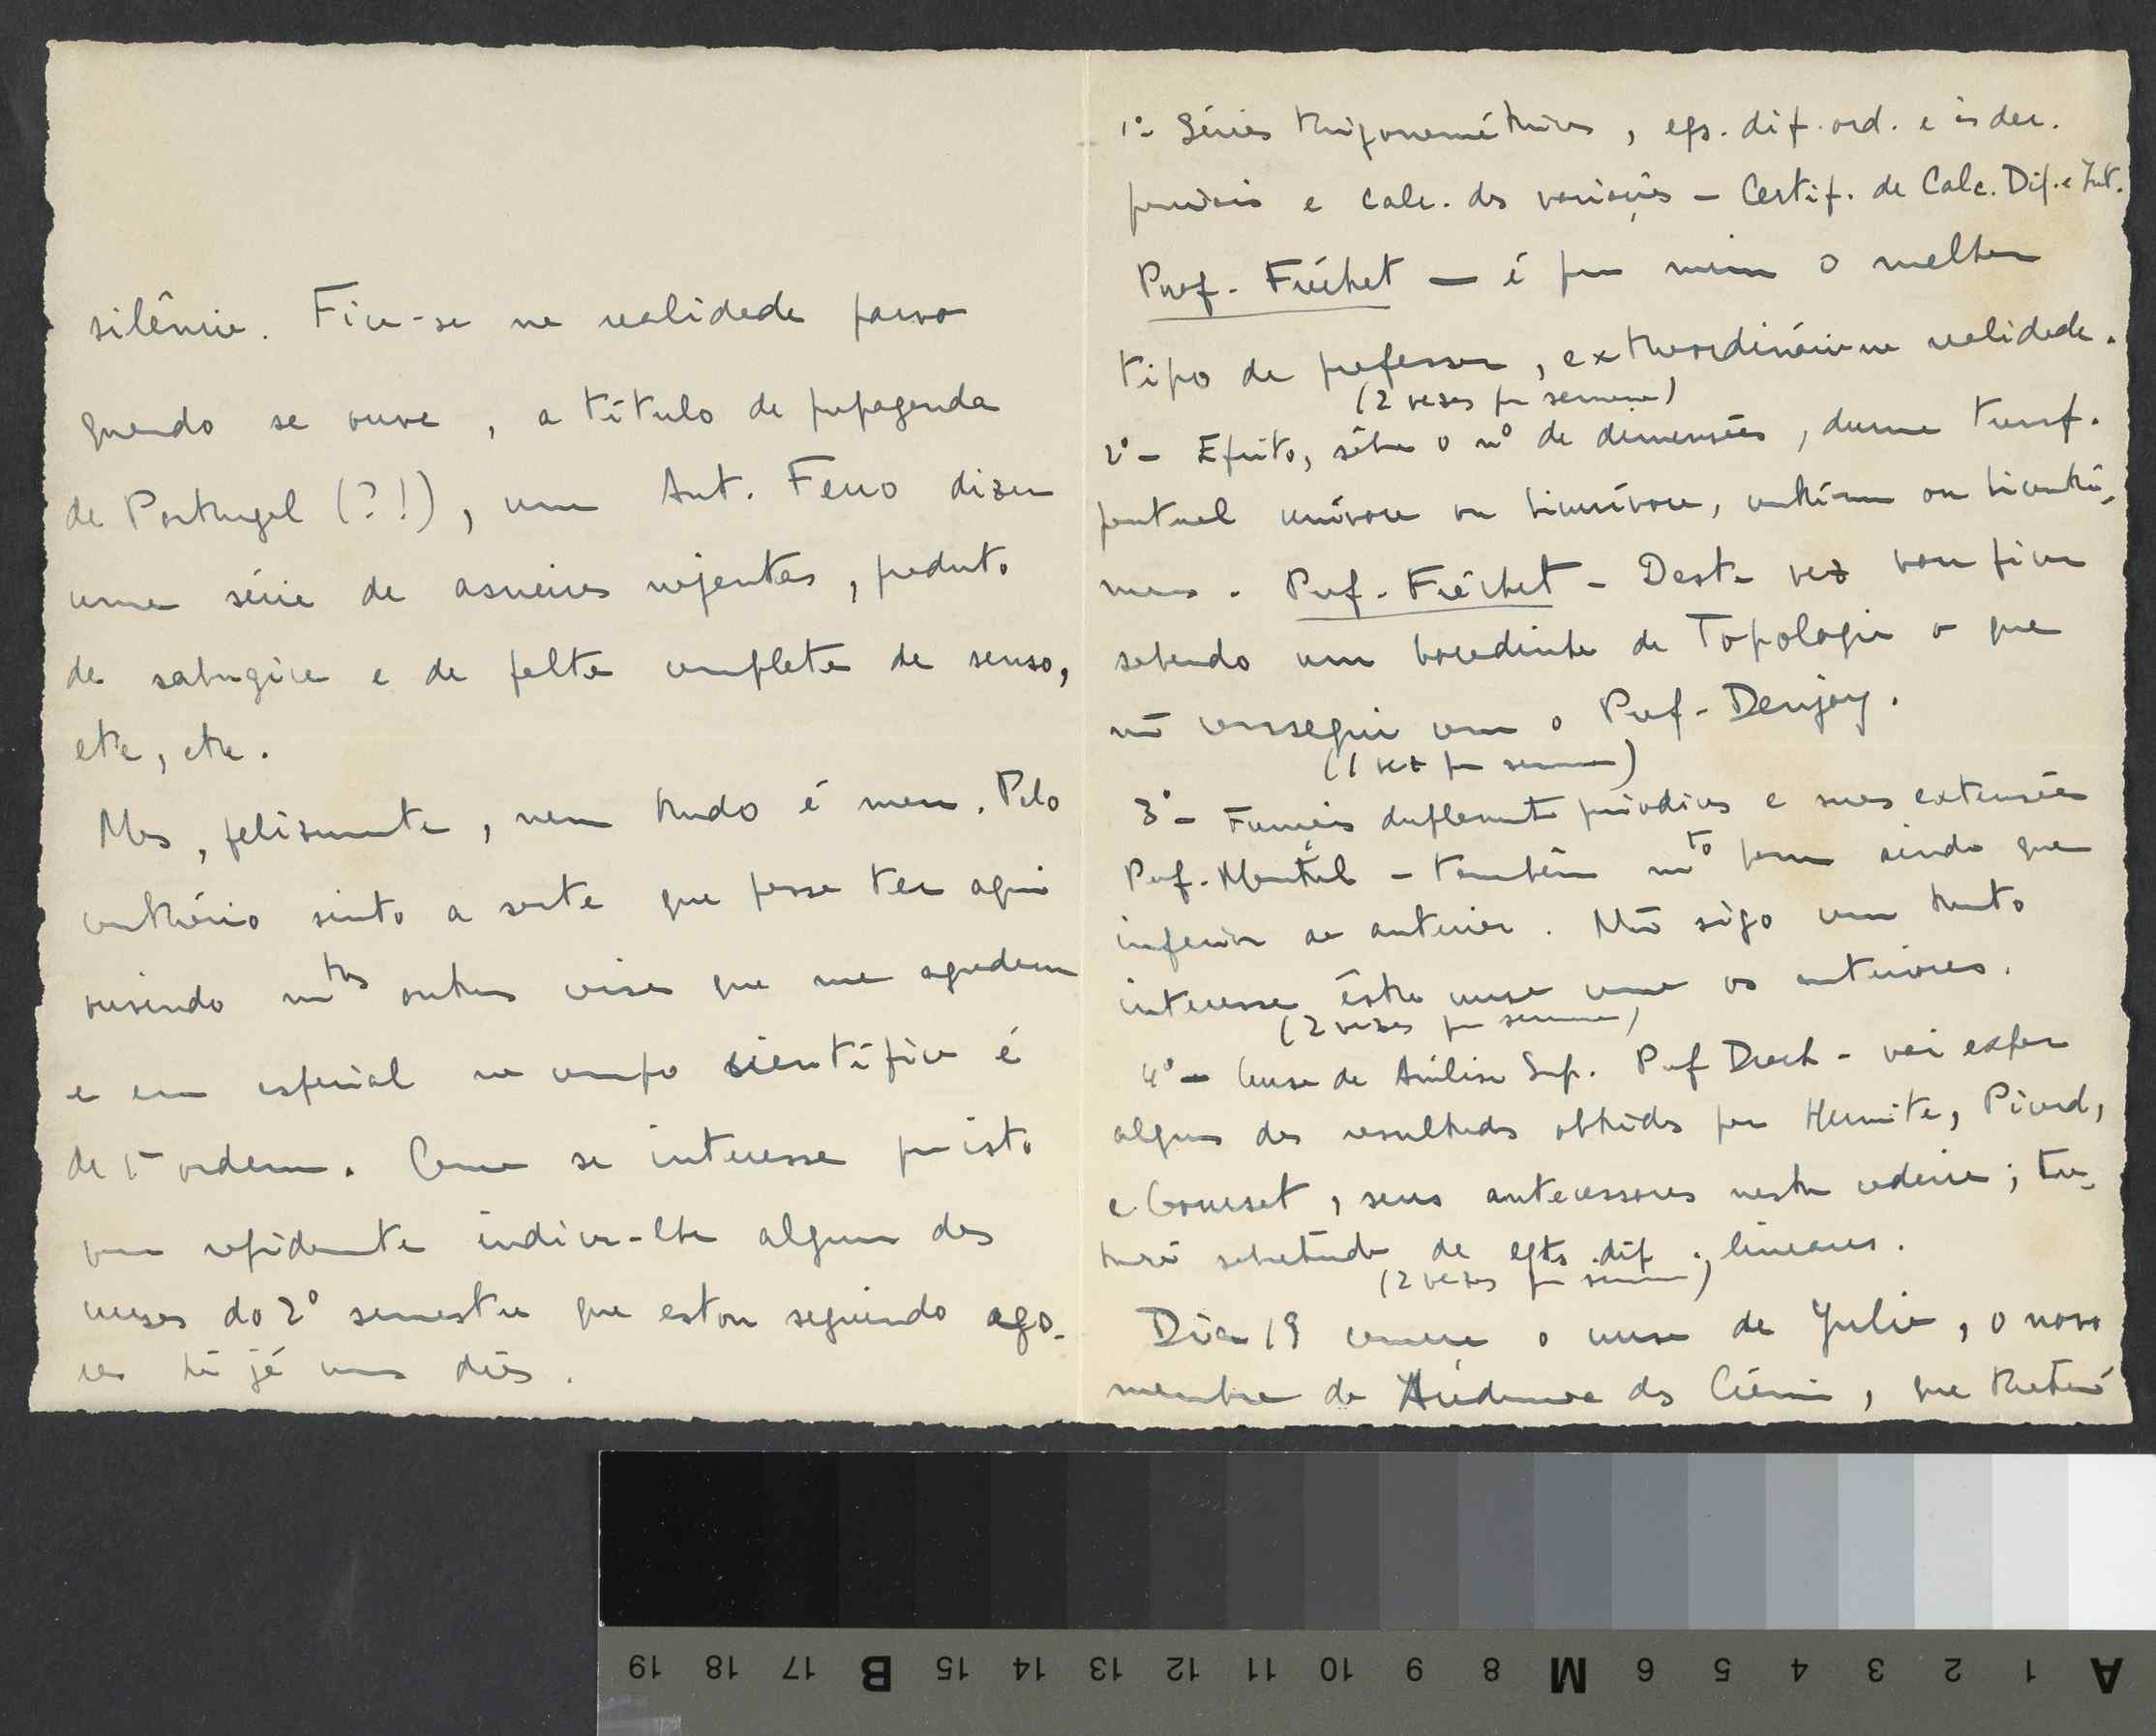 silêncio. Fica-se na realidade parvo
quando se ouve, a título de propaganda
de Portugal (?!), um Ant. Ferro dizer
uma série de asneiras nojentas, produto
de sabugice e de falta completa de senso,
etc, etc.
Mas, felizmente, nem tudo é mau. Pelo
contrário sinto a sorte que posso ter aqui
ouvindo mtas outras coisas que me agradam
e em especial no campo scientífico é
de 1ª ordem. Como se interessa por isto
vou rapidamente indicar-lhe alguns dos
cursos do 2º semestre que estou seguindo ago-
ra há já uns dias.
1º- Séries trigonométricas, eqs. dif. ord. e às der.
parciais e calc. das variações - Certif. de Calc. Dif. e Int.
Prof. Fréchet — é para mim o melhor
tipo de professor, extraordinário na realidade.
(2 vezes por semana)
2º - Espaços, sôbre o nº de dimensões, duma transf.
pontual unívoca ou biunívoca, contínua ou bicontí-
nua. Prof. Fréchet - Desta vez vou ficar
sabendo um bocadinho de Topologia o que
não consegui com o Prof. Denjoy.
(1 vez por semana)
3º - Funções duplamente periódicas e suas extensões
Prof. Montel - também mto bom ainda que
inferior ao anterior. Não sigo com tanto
interesse êste curso como os anteriores.
(2 vezes por semana)
4º - Curso de Análise Sup. Prof Drach - vai expor
alguns dos resultados obtidos por Hermite, Picard,
e Goursat, seus antecessores nesta cadeira; tra-
tará sobretudo de eqts. dif. lineares.
(2 vezes por semana)
Dia 19 começa o curso de Julia, o novo
membro da Academia das Ciências, que tratará